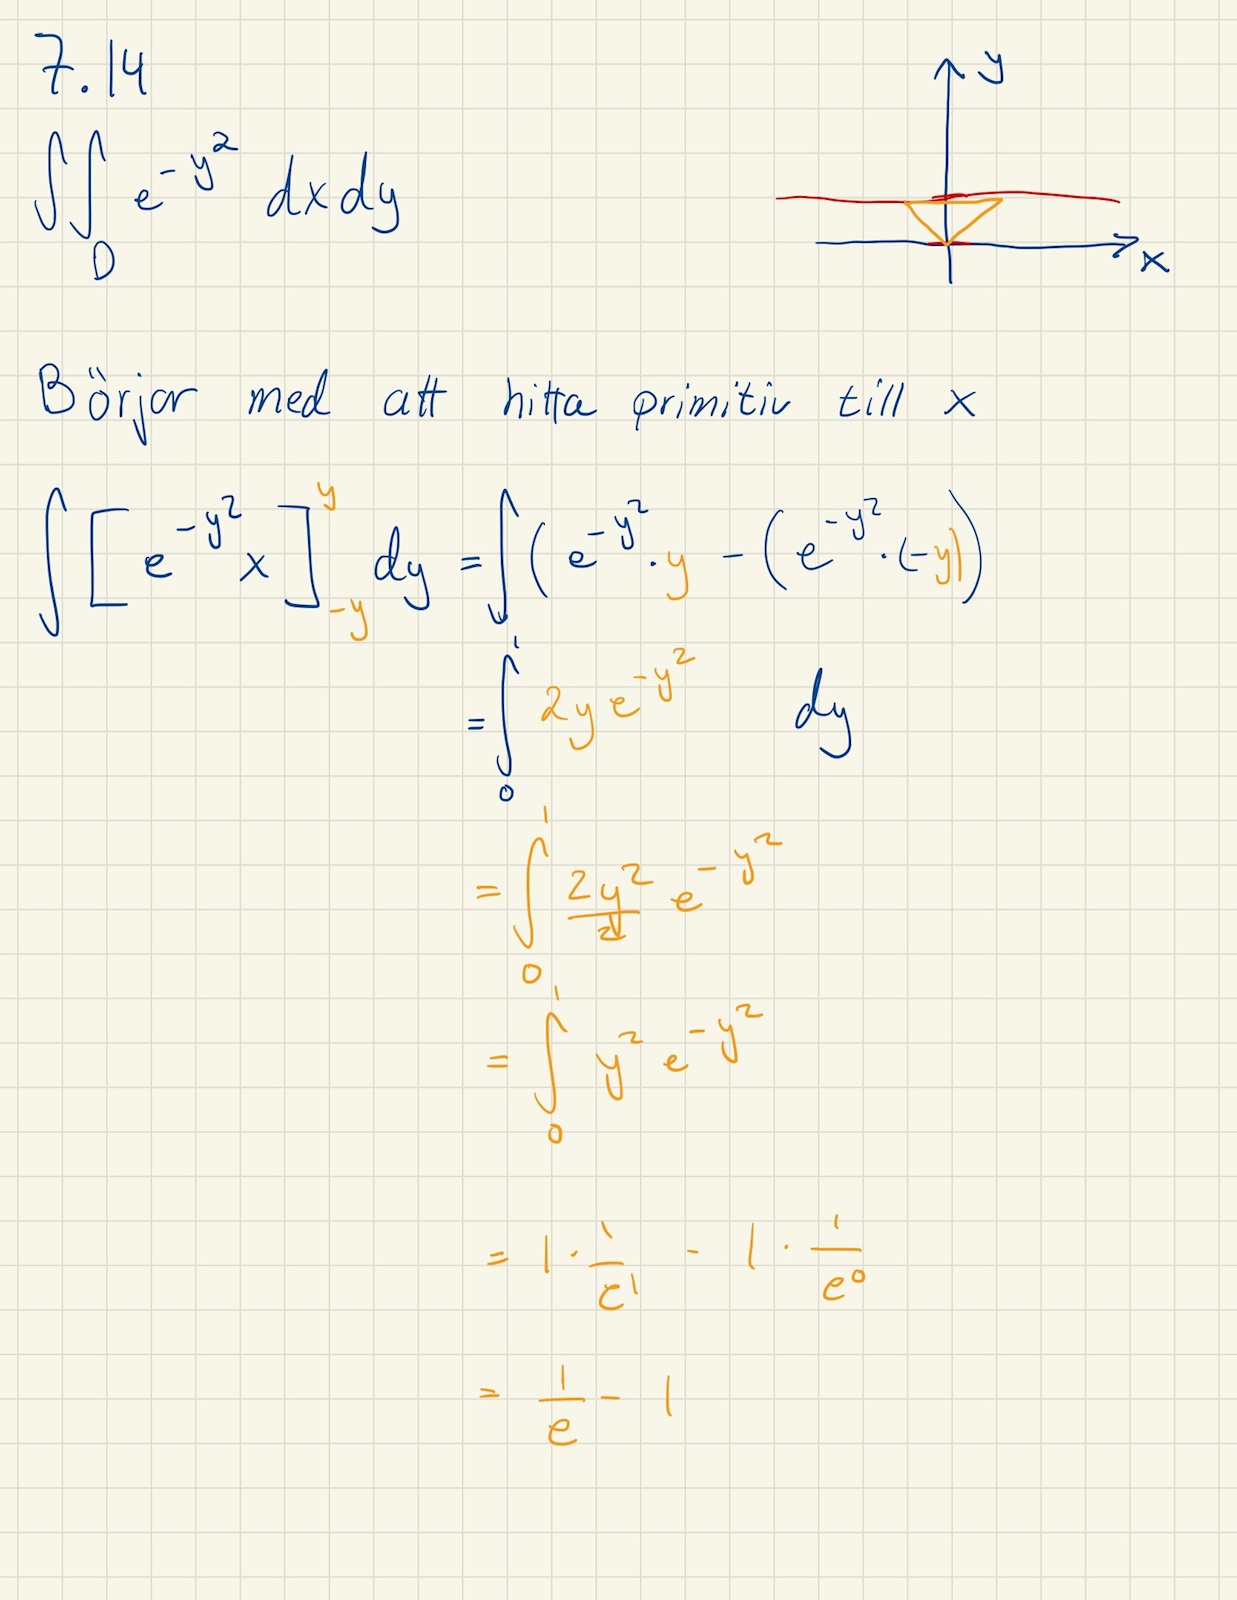 7.14
y
∫∫_D e^{-y^2} dxdy
x
Börjar med att hitta primitiv till x
∫ [e^{-y^2} x]_{-y}^{y} dy = ∫ (e^{-y^2} · y - (e^{-y^2} · (-y))
= ∫_0^1 2y e^{-y^2} dy
= ∫_0^1 \frac{2y^2}{2} e^{-y^2}
= ∫_0^1 y^2 e^{-y^2}
= 1 · \frac{1}{e^1} - 1 · \frac{1}{e^0}
= \frac{1}{e} - 1